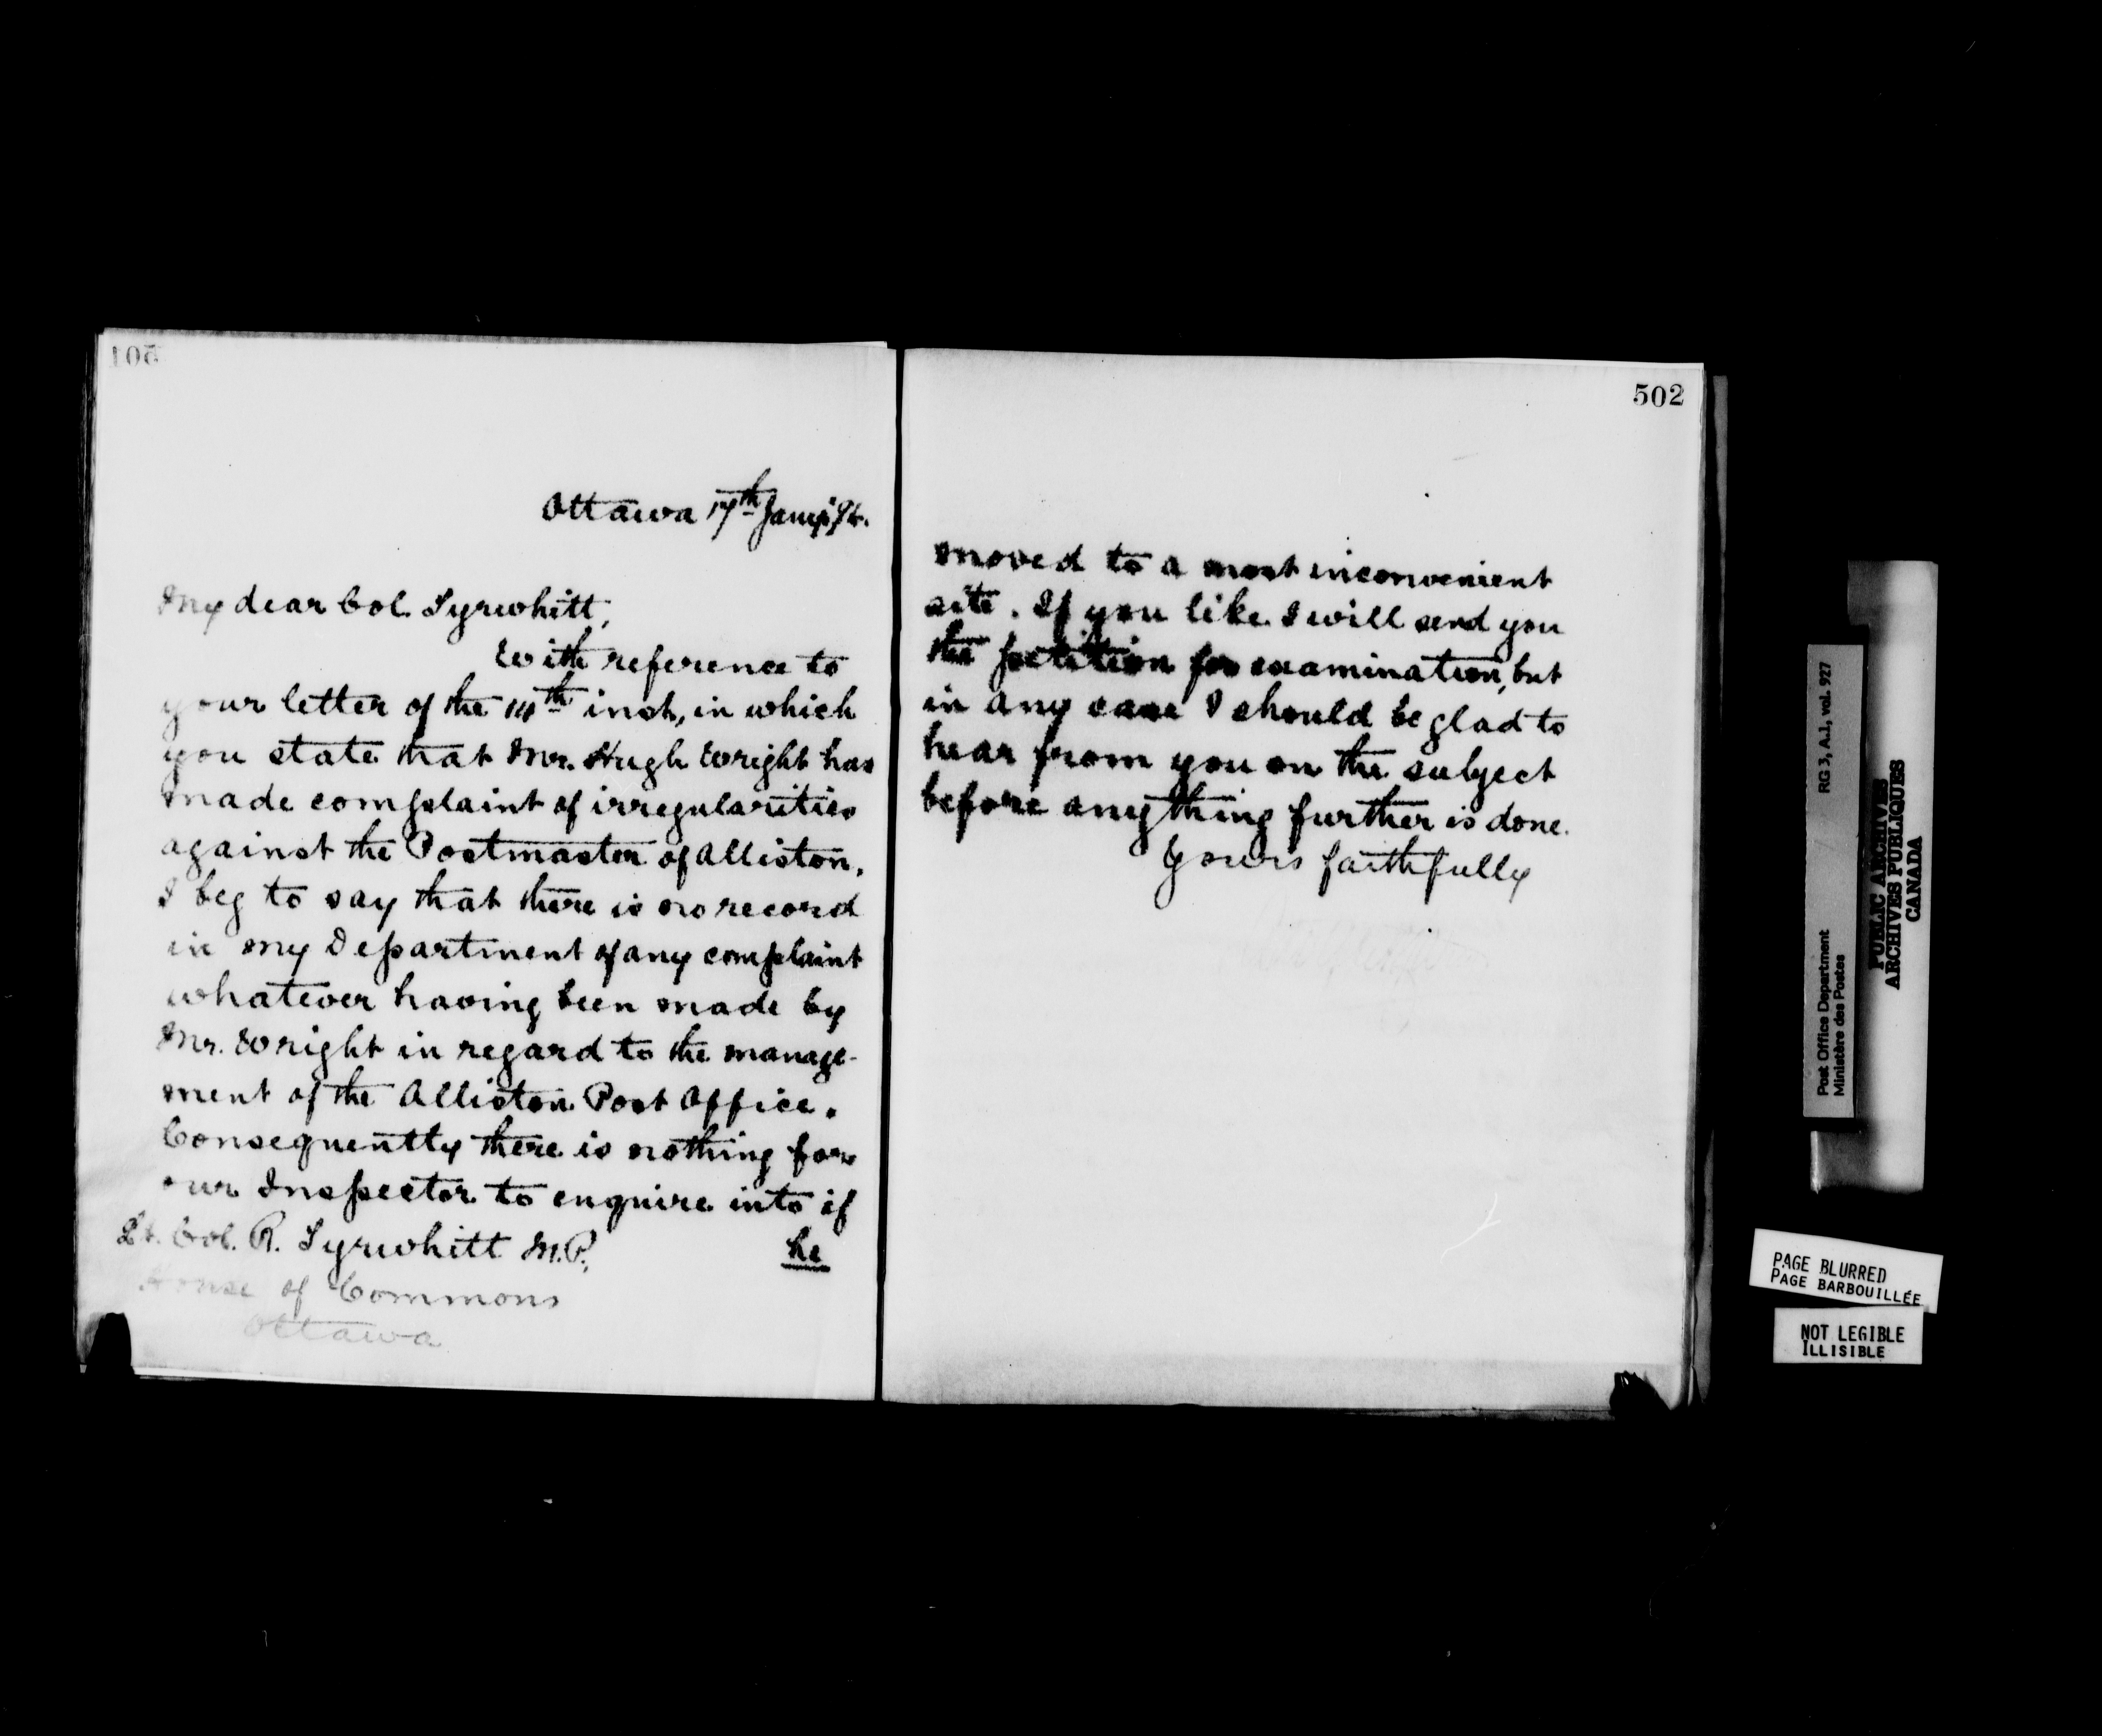 Ottawa 17th Jany '96.
My dear Col. Tyrwhitt,
With reference to
your letter of the 14th inst, in which
you state that Mr. Hugh Wright has
made complaint of irregularities
against the Postmaster of Alliston,
I beg to say that there is no record
in my Department of any complaint
whatever having been made by
Mr. Wright in regard to the manage-
ment of the Alliston Post Office.
Consequently there is nothing for
our Inspector to enquire into if
he
Lt. Col. R. Tyrwhitt M.P.
House of Commons
Ottawa
502
moved to a most inconvenient
site. If you like I will send you
the petition for examination, but
in any case I should be glad to
hear from you on the subject
before anything further is done.
Yours faithfully
RG 3, A.1, vol. 927
Post Office Department
Ministère des Postes
PUBLIC ARCHIVES
ARCHIVES PUBLIQUES
CANADA
PAGE BLURRED
PAGE BARBOUILLÉE
NOT LEGIBLE
ILLISIBLE